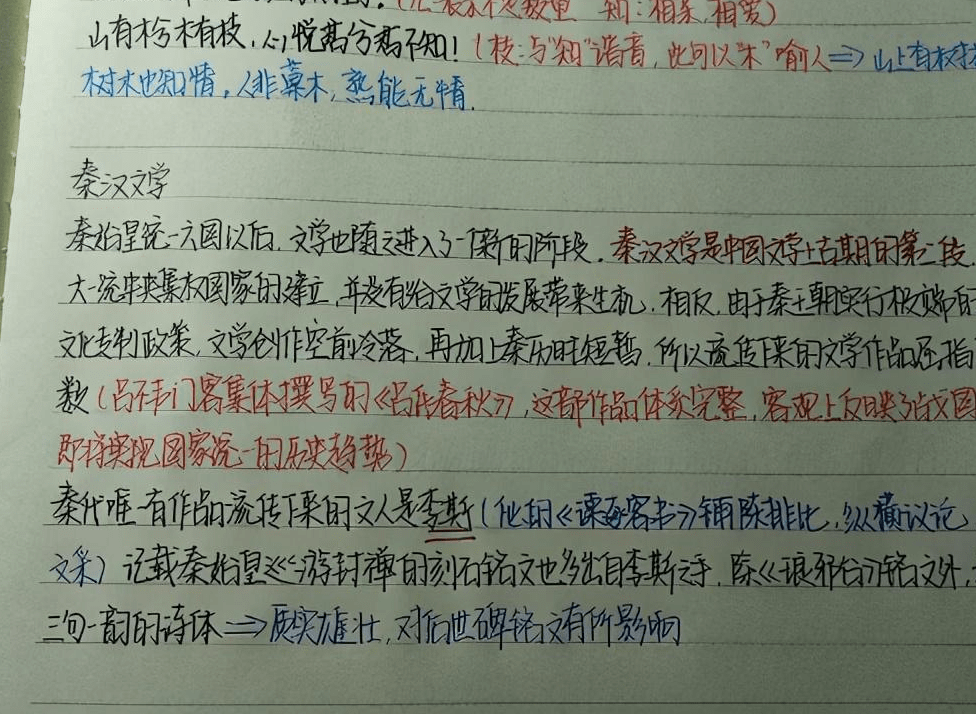 知：相亲，相爱）
山有木兮木有枝，心悦君兮君不知！（枝：与“知”谐音，此句以“木”喻人⇒山上有树木
树木也知情，人非草木，孰能无情.
秦汉文学
秦始皇统一六国以后，文学也随之进入了一个新的阶段.秦汉文学是中国文学上古期的第二段.
大一统中央集权国家的建立，并没有给文学的发展带来生机，相反，由于秦王朝实行极端的
文化专制政策，文学创作空前冷落，再加上秦历时短暂，所以流传下来的文学作品屈指
数（吕不韦门客集体撰写的《吕氏春秋》，这部作品体系完整，客观上反映了战国
即将实现国家统一的历史趋势）
秦代唯一有作品流传下来的文人是李斯（他的《谏逐客书》铺陈排比，纵横议论
文采）记载秦始皇巡游封禅的刻石铭文也多出自李斯之手，除《琅邪台》铭文外，
三句一韵的诗体⇒质实雄壮，对后世碑铭文有所影响